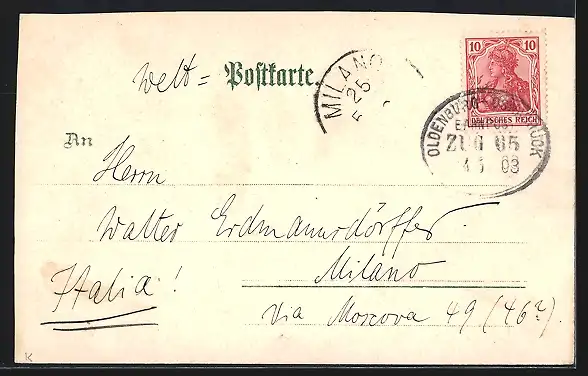 Welt = Postkarte.
MILANO
25
10 10
DEUTSCHES REICH
OLDENBURG
ZUG 65
03
An
Herrn
Walter Erdmannsdörffer
Milano
Italia!
Via Moscova 49 (46?).